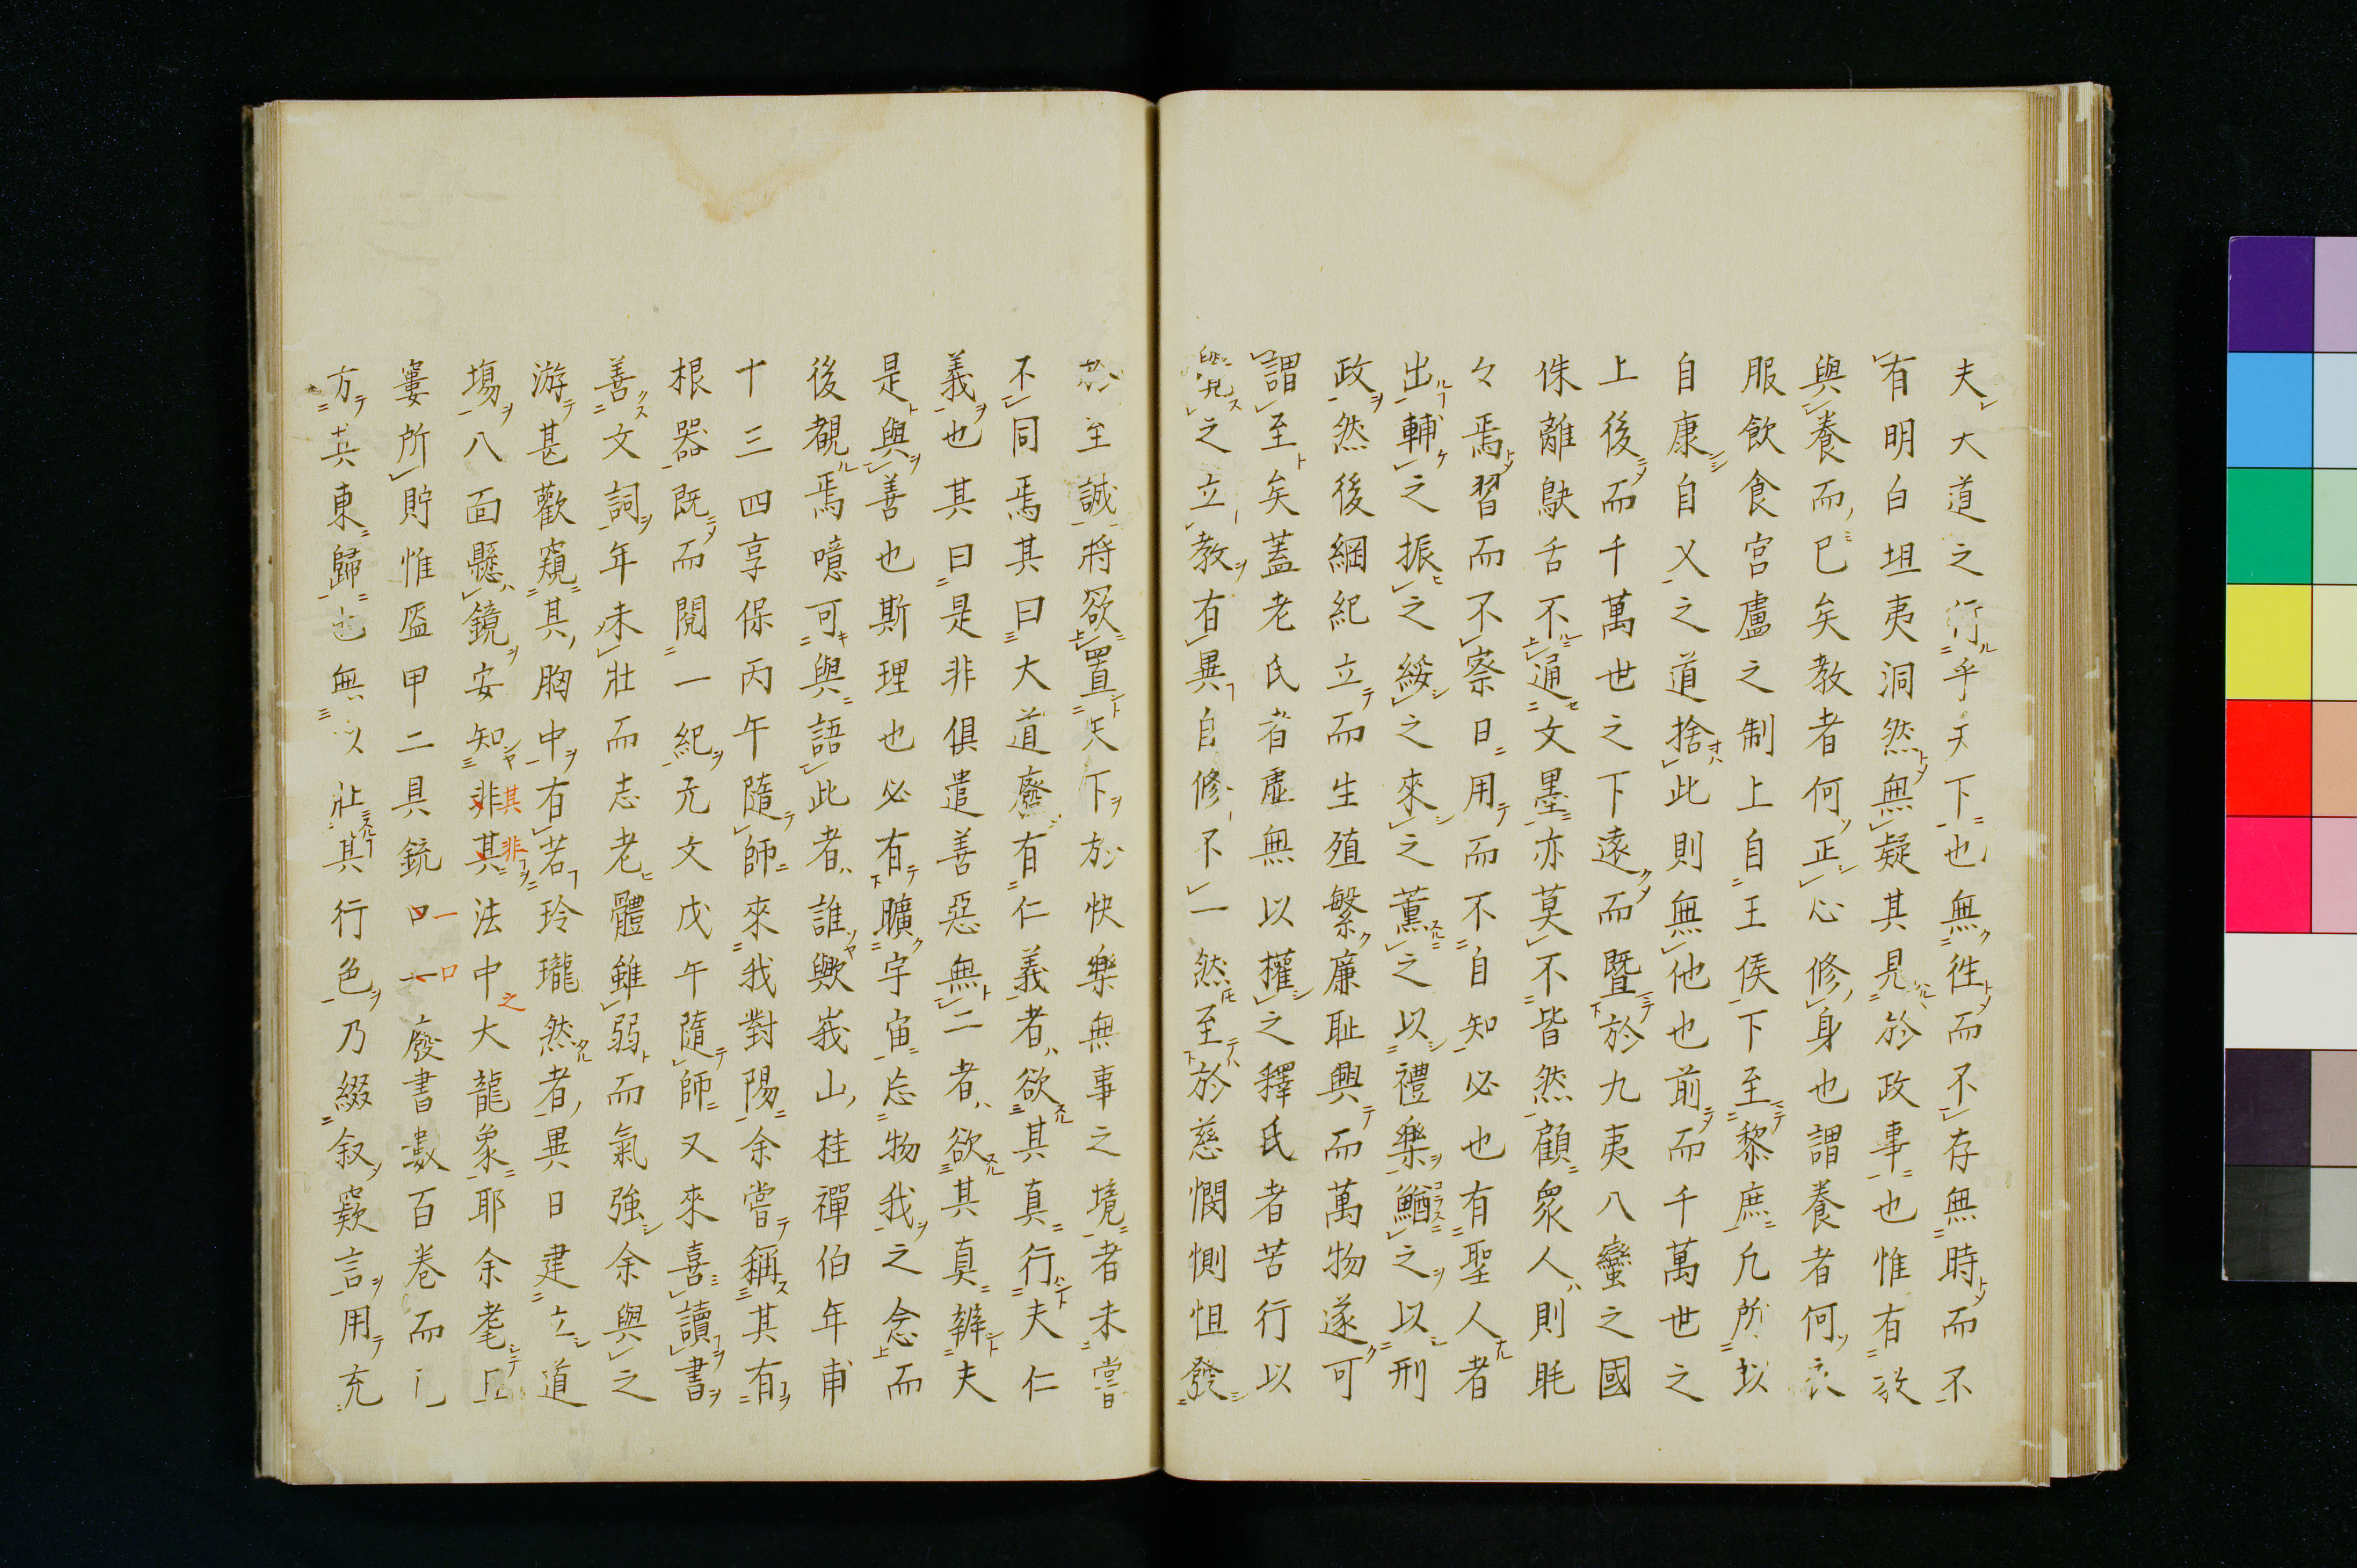 夫大道之行乎天下也無徃而不存無時而不
有明白坦夷洞然無疑其見於政事也惟有教
與養而已矣教者何正心修身也謂養者何衣
服飲食宮盧之制上自王侯下至黎庶凡所以
自康自乂之道捨此則無他也前而千萬世之
上後而千萬世之下遠而曁於九夷八蠻之國
侏離鴃舌不通文墨亦莫不皆然顧衆人則眊
々焉習而不察日用而不自知必也有聖人者
出輔之振之綏之來之薫之以禮樂鰌之以刑
政然後綱紀立而生殖繁廉耻興而萬物遂可
謂至矣蓋老氏者虛無以權之釋氏者苦行以
之立教有異自修不一然至於慈憫惻怛發
於至誠将欲置天下於快樂無事之境者未嘗
不同焉其曰大道廢有仁義者欲其真行夫仁
義也其曰是非俱遣善惡無二者欲其真辨夫
是與善也斯理也必有曠宇宙忘物我之念而
後覩焉噫可與語此者誰歟峩山桂禪伯年甫
十三四享保丙午隨師來我對陽余嘗稱其有
根器既而閲一紀元文戊午隨師又來喜讀書
善文詞年未壯而志老體雖弱而氣強余與之
游甚歡窺其胸中有若玲瓏然者異日建立道
塲八面懸鏡安知非其其非法中之大龍象耶余耄且
窶所貯惟盔甲二具銃口一一口廢書數百卷而已
方其東歸也無以壯其行色乃綴叙窾言用充